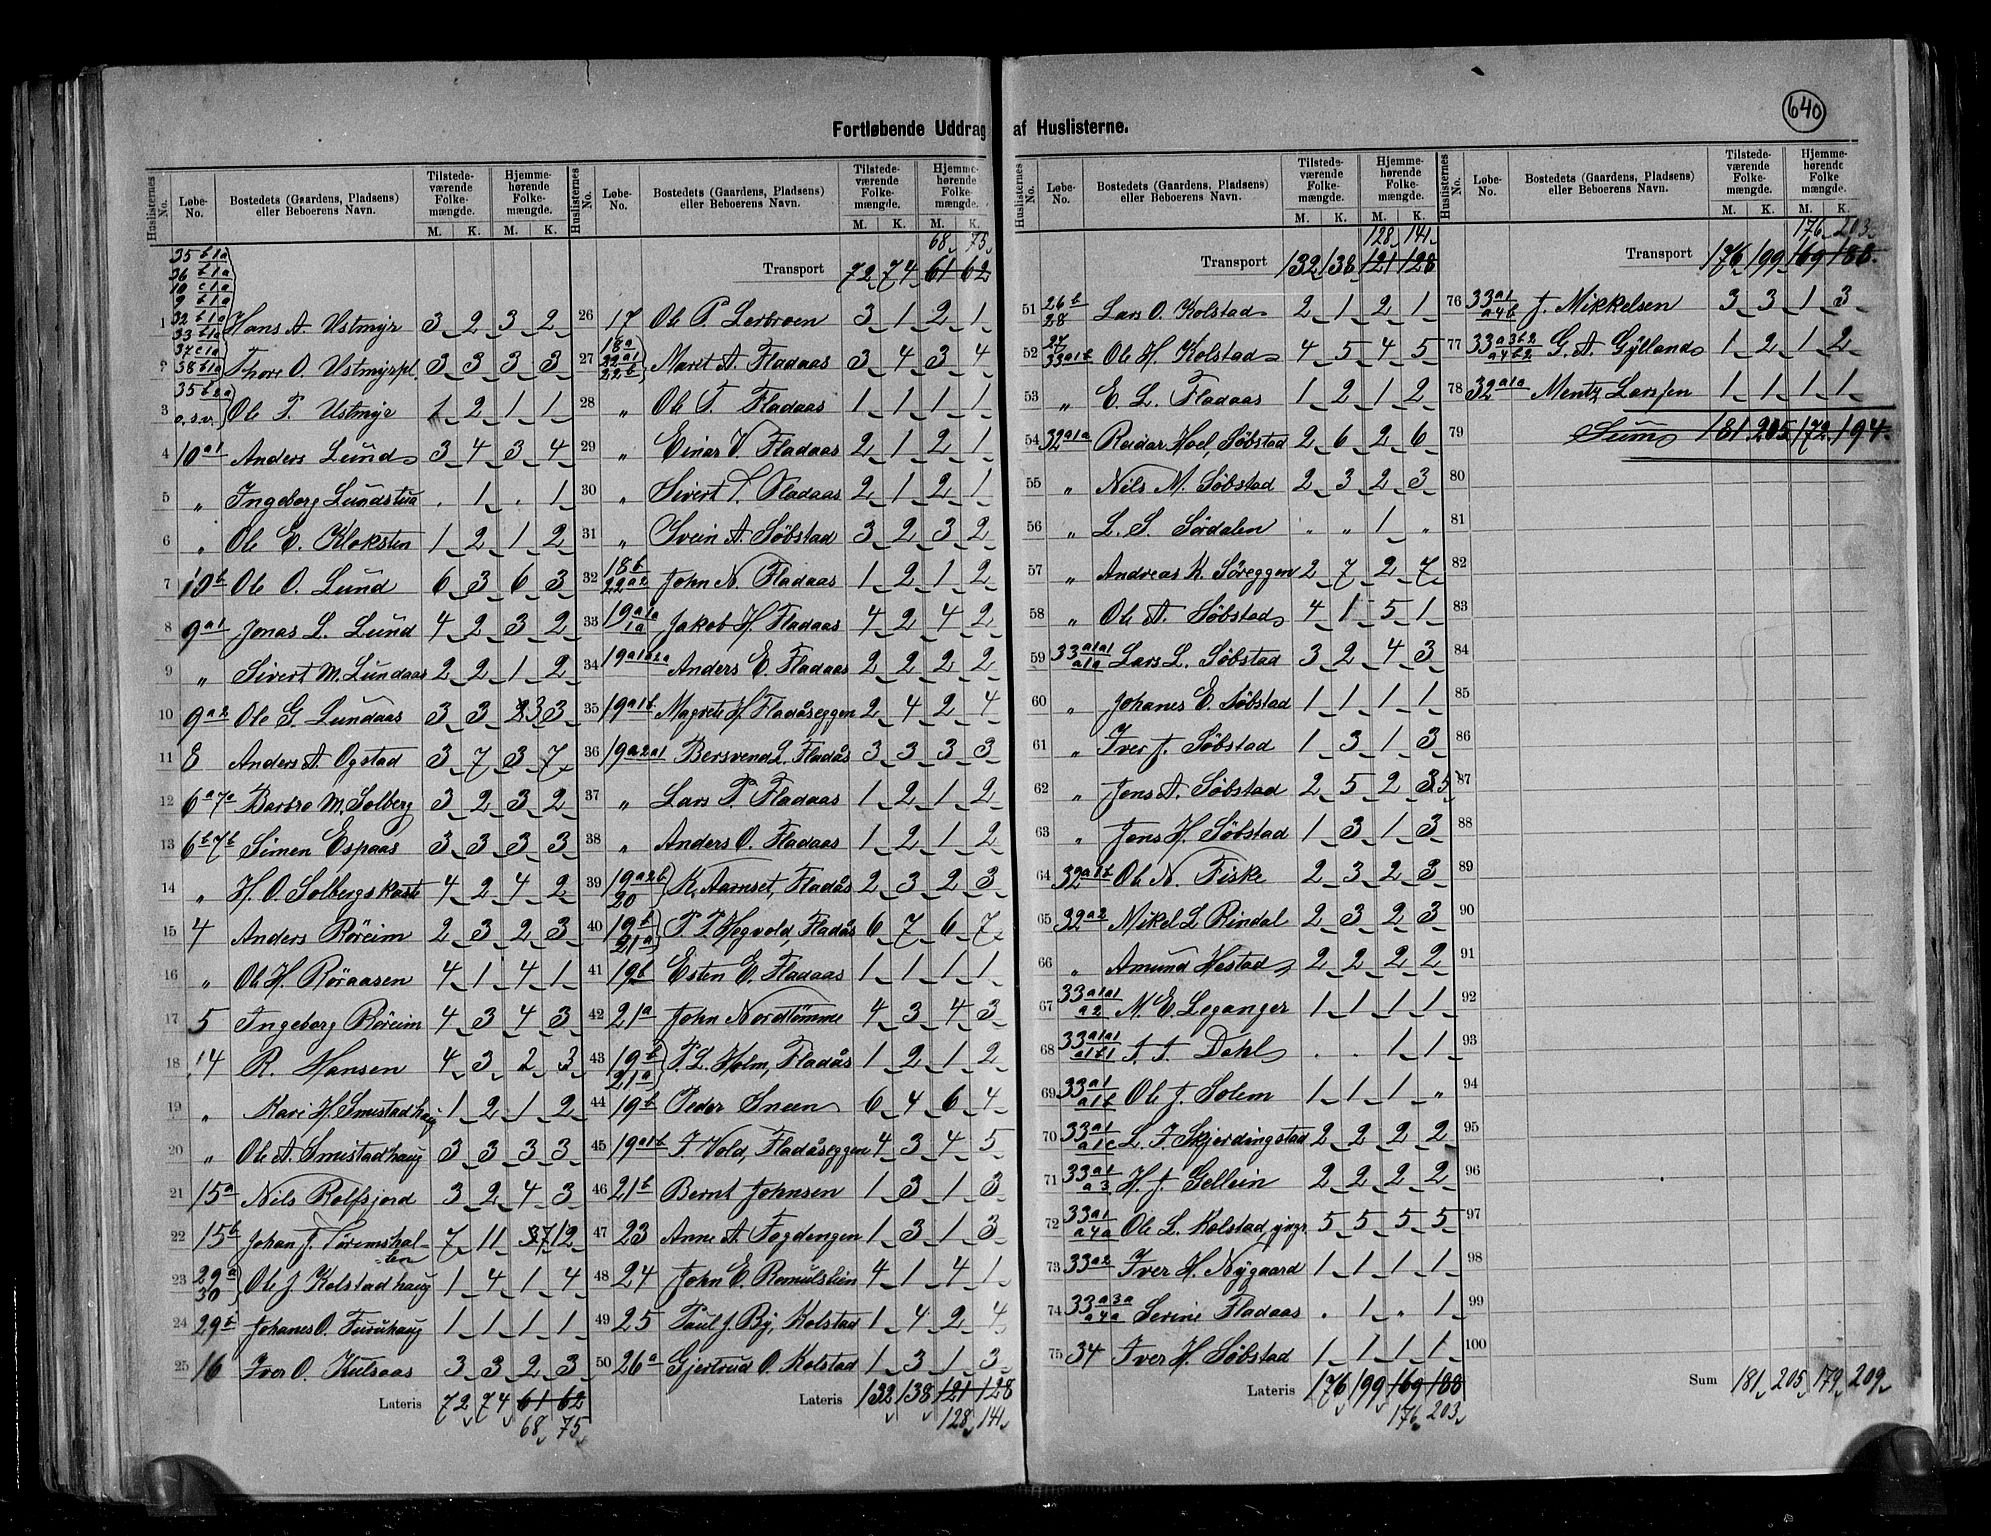 640
Fortløbende Uddrag af Huslisterne.
Huslisternes No. Løbe-No. Bostedets (Gaardens, Pladsens) eller Beboerens Navn. Tilstedeværende Folkemængde. M. K. Hjemmehørende Folkemængde. M. K.
35 b1a
36 b1a
10 c1a
9 b1a
32 b1a
1 33 b1a Hans A Ustmyr 3 2 3 2
37 c1a
2 38 b1a Thore O. Ustmyrpl. 3 3 3 3
35 b2a
3 o.s.v. Ole P. Ustmye 1 2 1 1
4 10 a1 Anders Lund 3 4 3 4
5 " Ingeborg Lundstua . 1 . 1
6 " Ole E. Kloksten 1 2 1 2
7 10 b Ole O. Lund 6 3 6 3
8 9 a1 Jonas L. Lund 4 2 3 2
9 " Sivert M. Lundaas 2 2 1 2
10 9 a2 Ole G. Lundaas 3 3 3 3
11 8 Anders A. Ogstad 3 7 3 7
12 6a 7a Barbro M. Solberg 3 2 3 2
13 6b 7b Simen Espaas 3 3 3 3
14 " H. O. Solbergskast 4 2 4 2
15 4 Anders Röreim 2 3 2 3
16 " Ole H. Röraasen 4 1 4 1
17 5 Ingeborg Röreim 4 3 4 3
18 14 R. Hansen 4 3 2 3
19 " Kari H. Smistadhaug 1 2 1 2
20 " Ole A. Smistadhaug 3 3 3 3
21 15 a Nils Rolfsjord 3 2 4 3
22 15 b Johan J. Töremshallen 7 11 7 12
23 29 a 30 Ole J. Kolstadhaug 1 4 1 4
24 29 b Johanes O. Furuhaug 1 1 1 1
25 16 Iver O. Kulsaas 3 3 2 3
Lateris 72 74 61 62
68 75
Huslisternes No. Løbe-No. Bostedets (Gaardens, Pladsens) eller Beboerens Navn. Tilstedeværende Folkemængde. M. K. Hjemmehørende Folkemængde. M. K.
68 75
Transport 72 74 61 62
26 17 Ole P. Lerbroen 3 1 2 1
27 18a 22a1 22b Marit A. Fladaas 3 4 3 4
28 " Ole T. Fladaas 1 1 1 1
29 " Einar V. Fladaas 2 1 2 1
30 " Sivert T. Fladaas 2 1 2 1
31 " Svein A. Söbstad 3 2 3 2
32 18b 22a2 John N. Fladaas 1 2 1 2
33 19a1a 1a Jakob H. Fladaas 4 2 4 2
34 19a1a2a Anders E. Fladaas 2 2 2 2
35 19a1b Magrete H. Fladåseggen 2 4 2 4
36 19a2a1 Bersvend L. Fladås 3 3 3 3
37 " Lars P. Fladaas 1 2 1 2
38 " Anders O. Fladaas 1 2 1 2
39 19a2b 20 K. Aarnset, Fladås 2 3 2 3
40 19b 21a P. P. Hogvold, Fladås 6 7 6 7
41 19b Esten E. Fladaas 1 1 1 1
42 21a John Nordtömme 4 3 4 3
43 19b 21a P. L. Holm, Fladås 1 2 1 2
44 19b Peder Sneen 6 4 6 4
45 19a1b I. Vold, Fladåseggen 4 3 4 5
46 21b Bernt Johnsen 1 3 1 3
47 23 Anne A. Fogdengen 1 3 1 3
48 24 John E. Romulslien 4 1 4 1
49 25 Paul J. By, Kolstad 1 4 2 4
50 26a Gjertrud O. Kolstad 1 3 1 3
Lateris 132 138 121 128
128 141
Huslisternes No. Løbe-No. Bostedets (Gaardens, Pladsens) eller Beboerens Navn. Tilstedeværende Folkemængde. M. K. Hjemmehørende Folkemængde. M. K.
128 141
Transport 132 138 121 128
51 26b 28 Lars O. Kolstad 2 1 2 1
52 27 33a1b Ole H. Kolstad 4 5 4 5
53 " E. L. Fladaas 1 2 1 2
54 32a1a Reidar Hoel, Söbstad 2 6 2 6
55 " Nils M. Söbstad 2 3 2 3
56 " L. S. Sördalen " " 1 "
57 " Andreas K. Söreggen 2 7 2 7
58 " Ole A. Söbstad 4 1 5 1
59 33a1a1 a1a Lars L. Söbstad 3 2 4 3
60 " Johanes E. Söbstad 1 1 1 1
61 " Iver J. Söbstad 1 3 1 3
62 " Jens A. Söbstad 2 5 2 3 5
63 " Jens H. Söbstad 1 3 1 3
64 32a1b Ole N. Fiske 2 3 2 3
65 32a2 Mikel L. Rindal 2 3 2 3
66 " Amund Hestad 2 2 2 2
67 33a1a1 a2 M. E. Leganger 1 1 1 1
68 33a1a1 a1b1 I. I. Dahl . . 1 1
69 33a1 a1b Ole J. Solem 1 1 1 "
70 33a1 a1c L. I. Skjerdingstad 2 2 2 2
71 33a1 a3 H. J. Gellein 2 2 2 2
72 33a1 a4a Ole L. Kolstad yngr. 5 5 5 5
73 33a2 Iver H. Nygaard 1 1 1 1
74 33a3a a4a Serine Fladaas . 1 " 1
75 34 Iver H. Söbstad 1 1 1 1
Lateris 176 199 169 188
176 203
Huslisternes No. Løbe-No. Bostedets (Gaardens, Pladsens) eller Beboerens Navn. Tilstedeværende Folkemængde. M. K. Hjemmehørende Folkemængde. M. K.
176 203
Transport 176 199 169 188
76 33a1 a4b J. Mikkelsen 3 3 1 3
77 33a3b2 a4b2 G. A. Gylland 1 2 1 2
78 32a1a Mentz Larssen 1 1 1 1
79 Sum 181 205 172 194
80
81
82
83
84
85
86
87
88
89
90
91
92
93
94
95
96
97
98
99
100
Sum 181 205 179 209